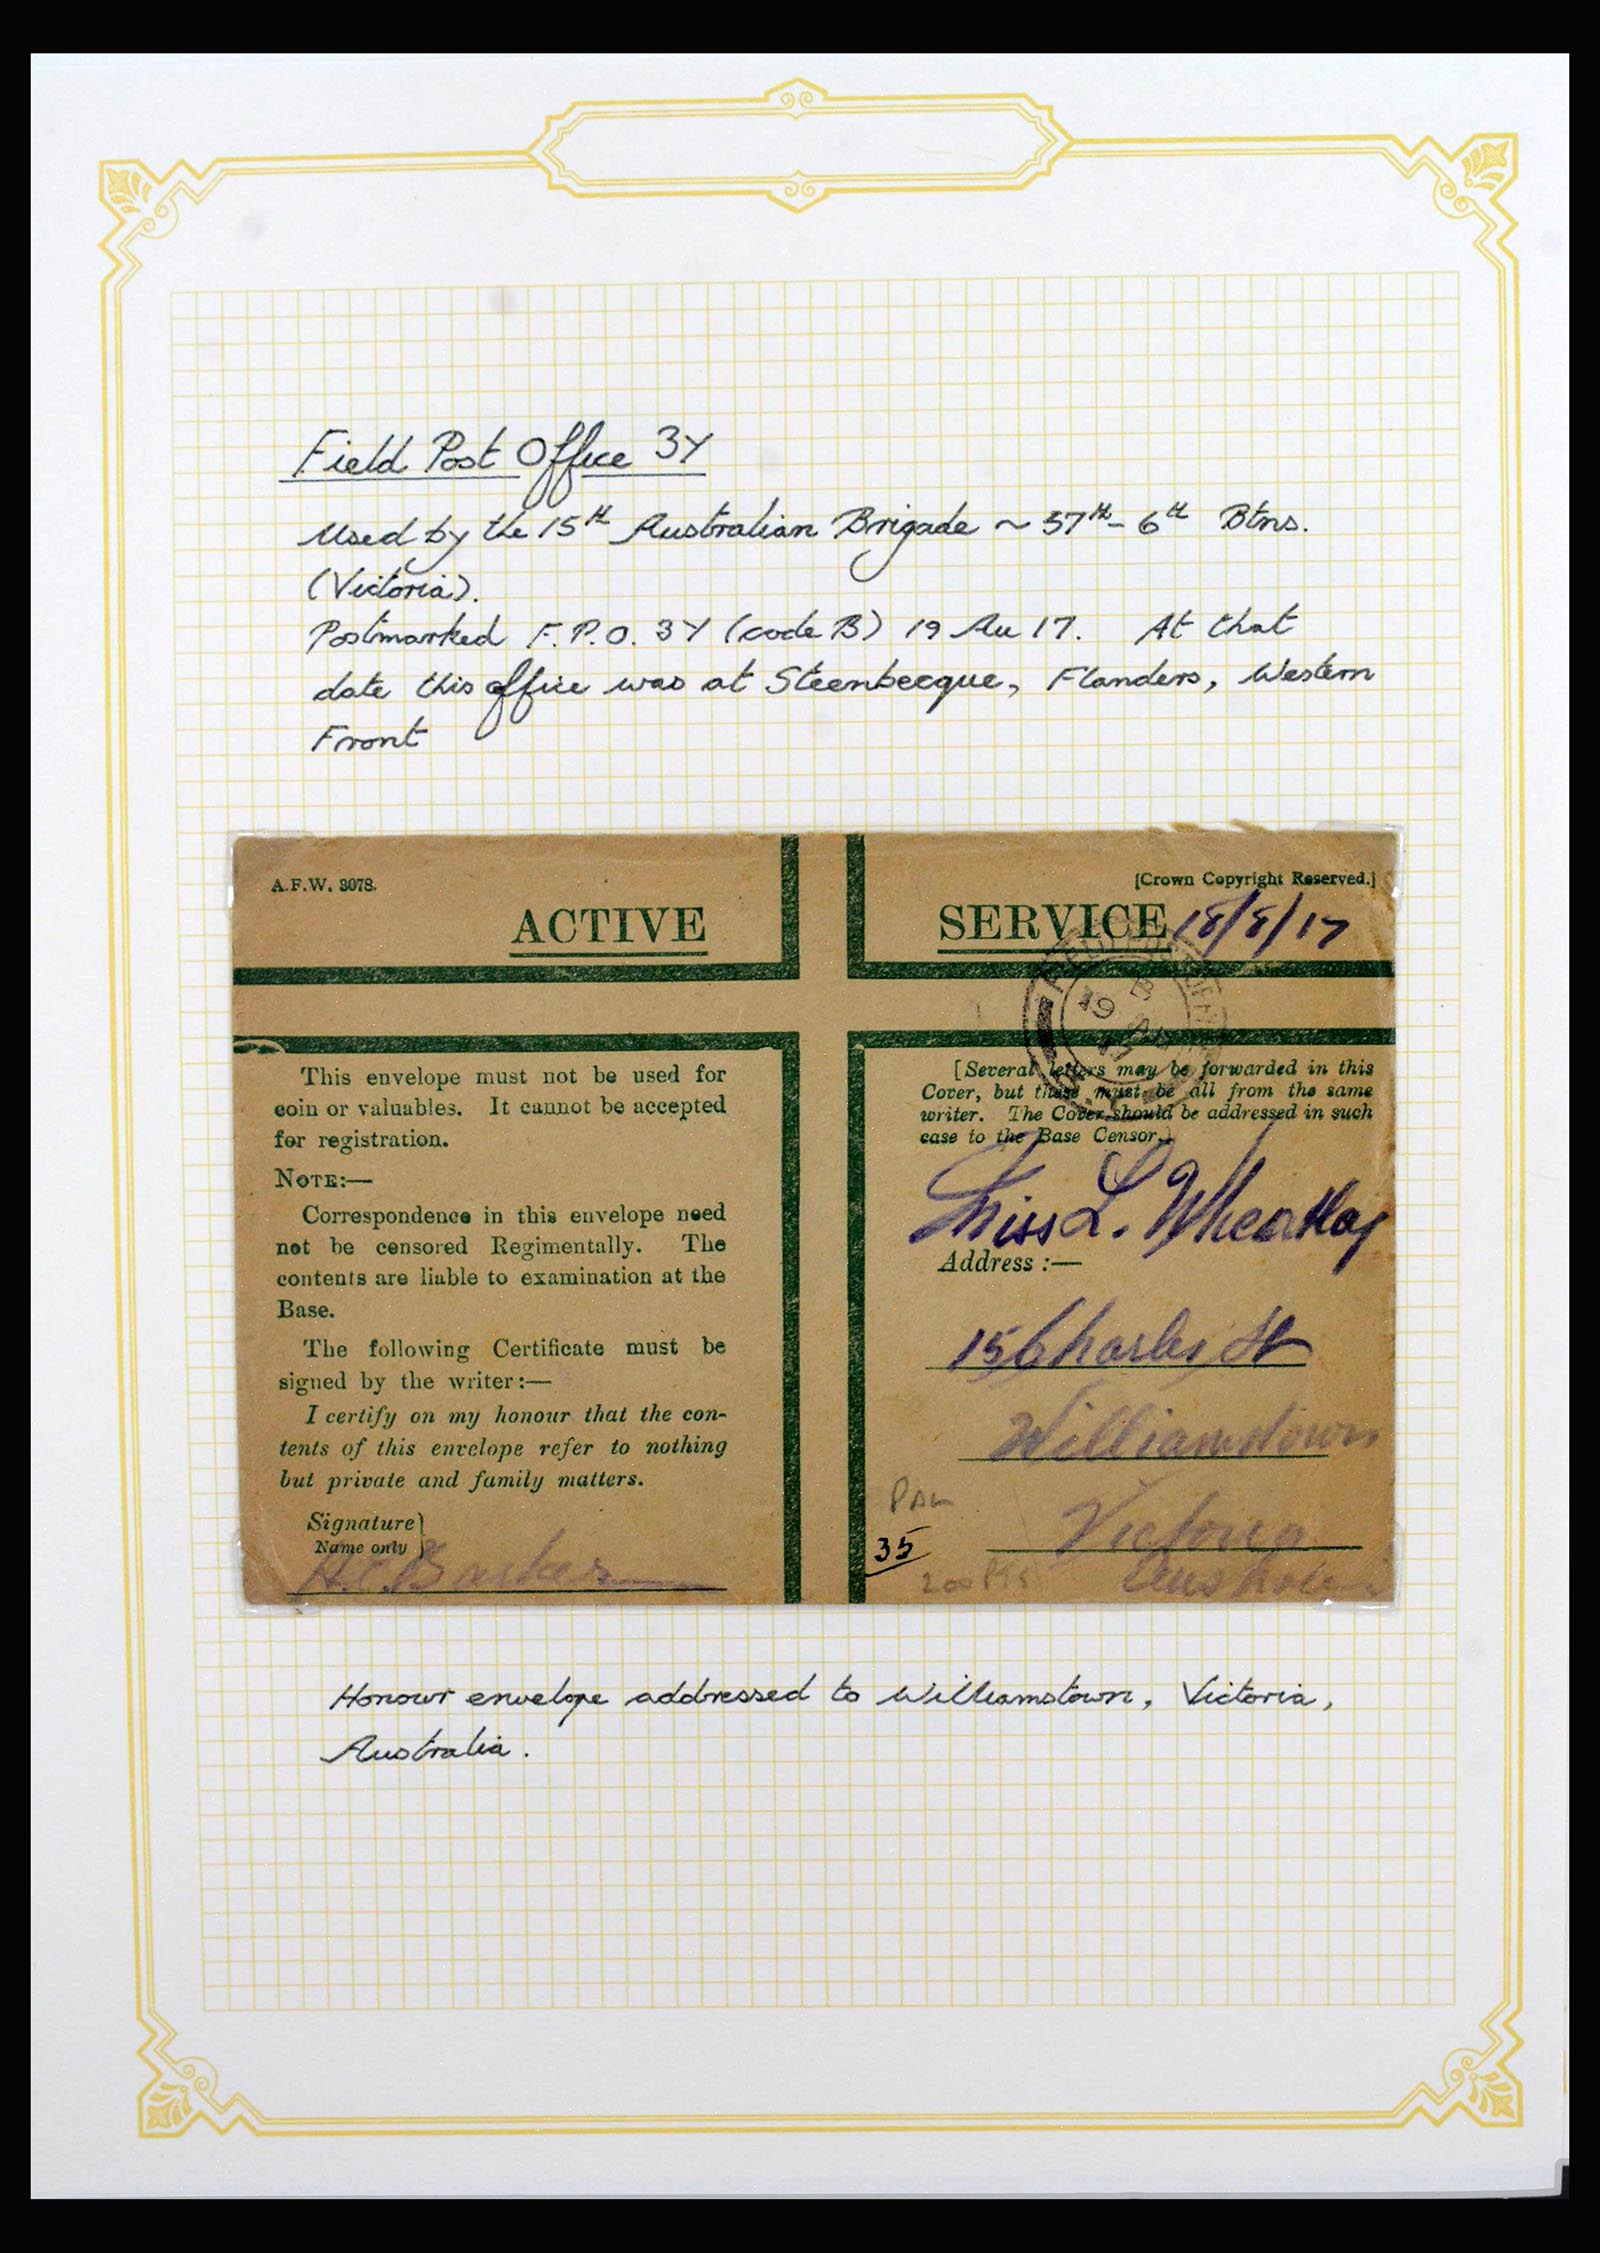 Field Post Office 3Y
Used by the 15th Australian Brigade ~ 57th - 6th Btns.
(Victoria).
Postmarked F.P.O. 3Y (code B) 19 Au 17. At that
date this office was at Steenbecque, Flanders, Western
Front
A.F.W. 3078.
[Crown Copyright Reserved.]
ACTIVE
SERVICE
18/8/17
19 B
This envelope must not be used for
coin or valuables. It cannot be accepted
for registration.
NOTE:—
Correspondence in this envelope need
not be censored Regimentally. The
contents are liable to examination at the
Base.
The following Certificate must be
signed by the writer:—
I certify on my honour that the con-
tents of this envelope refer to nothing
but private and family matters.
Signature}
Name only
H.C. Barker
[Several letters may be forwarded in this
Cover, but these must be all from the same
writer. The Cover should be addressed in such
case to the Base Censor.]
Miss L. Wheatley
Address :—
15 Charles St
Williamstown
Victoria
Australia
35
200 PTS
Honour envelope addressed to Williamstown, Victoria,
Australia.